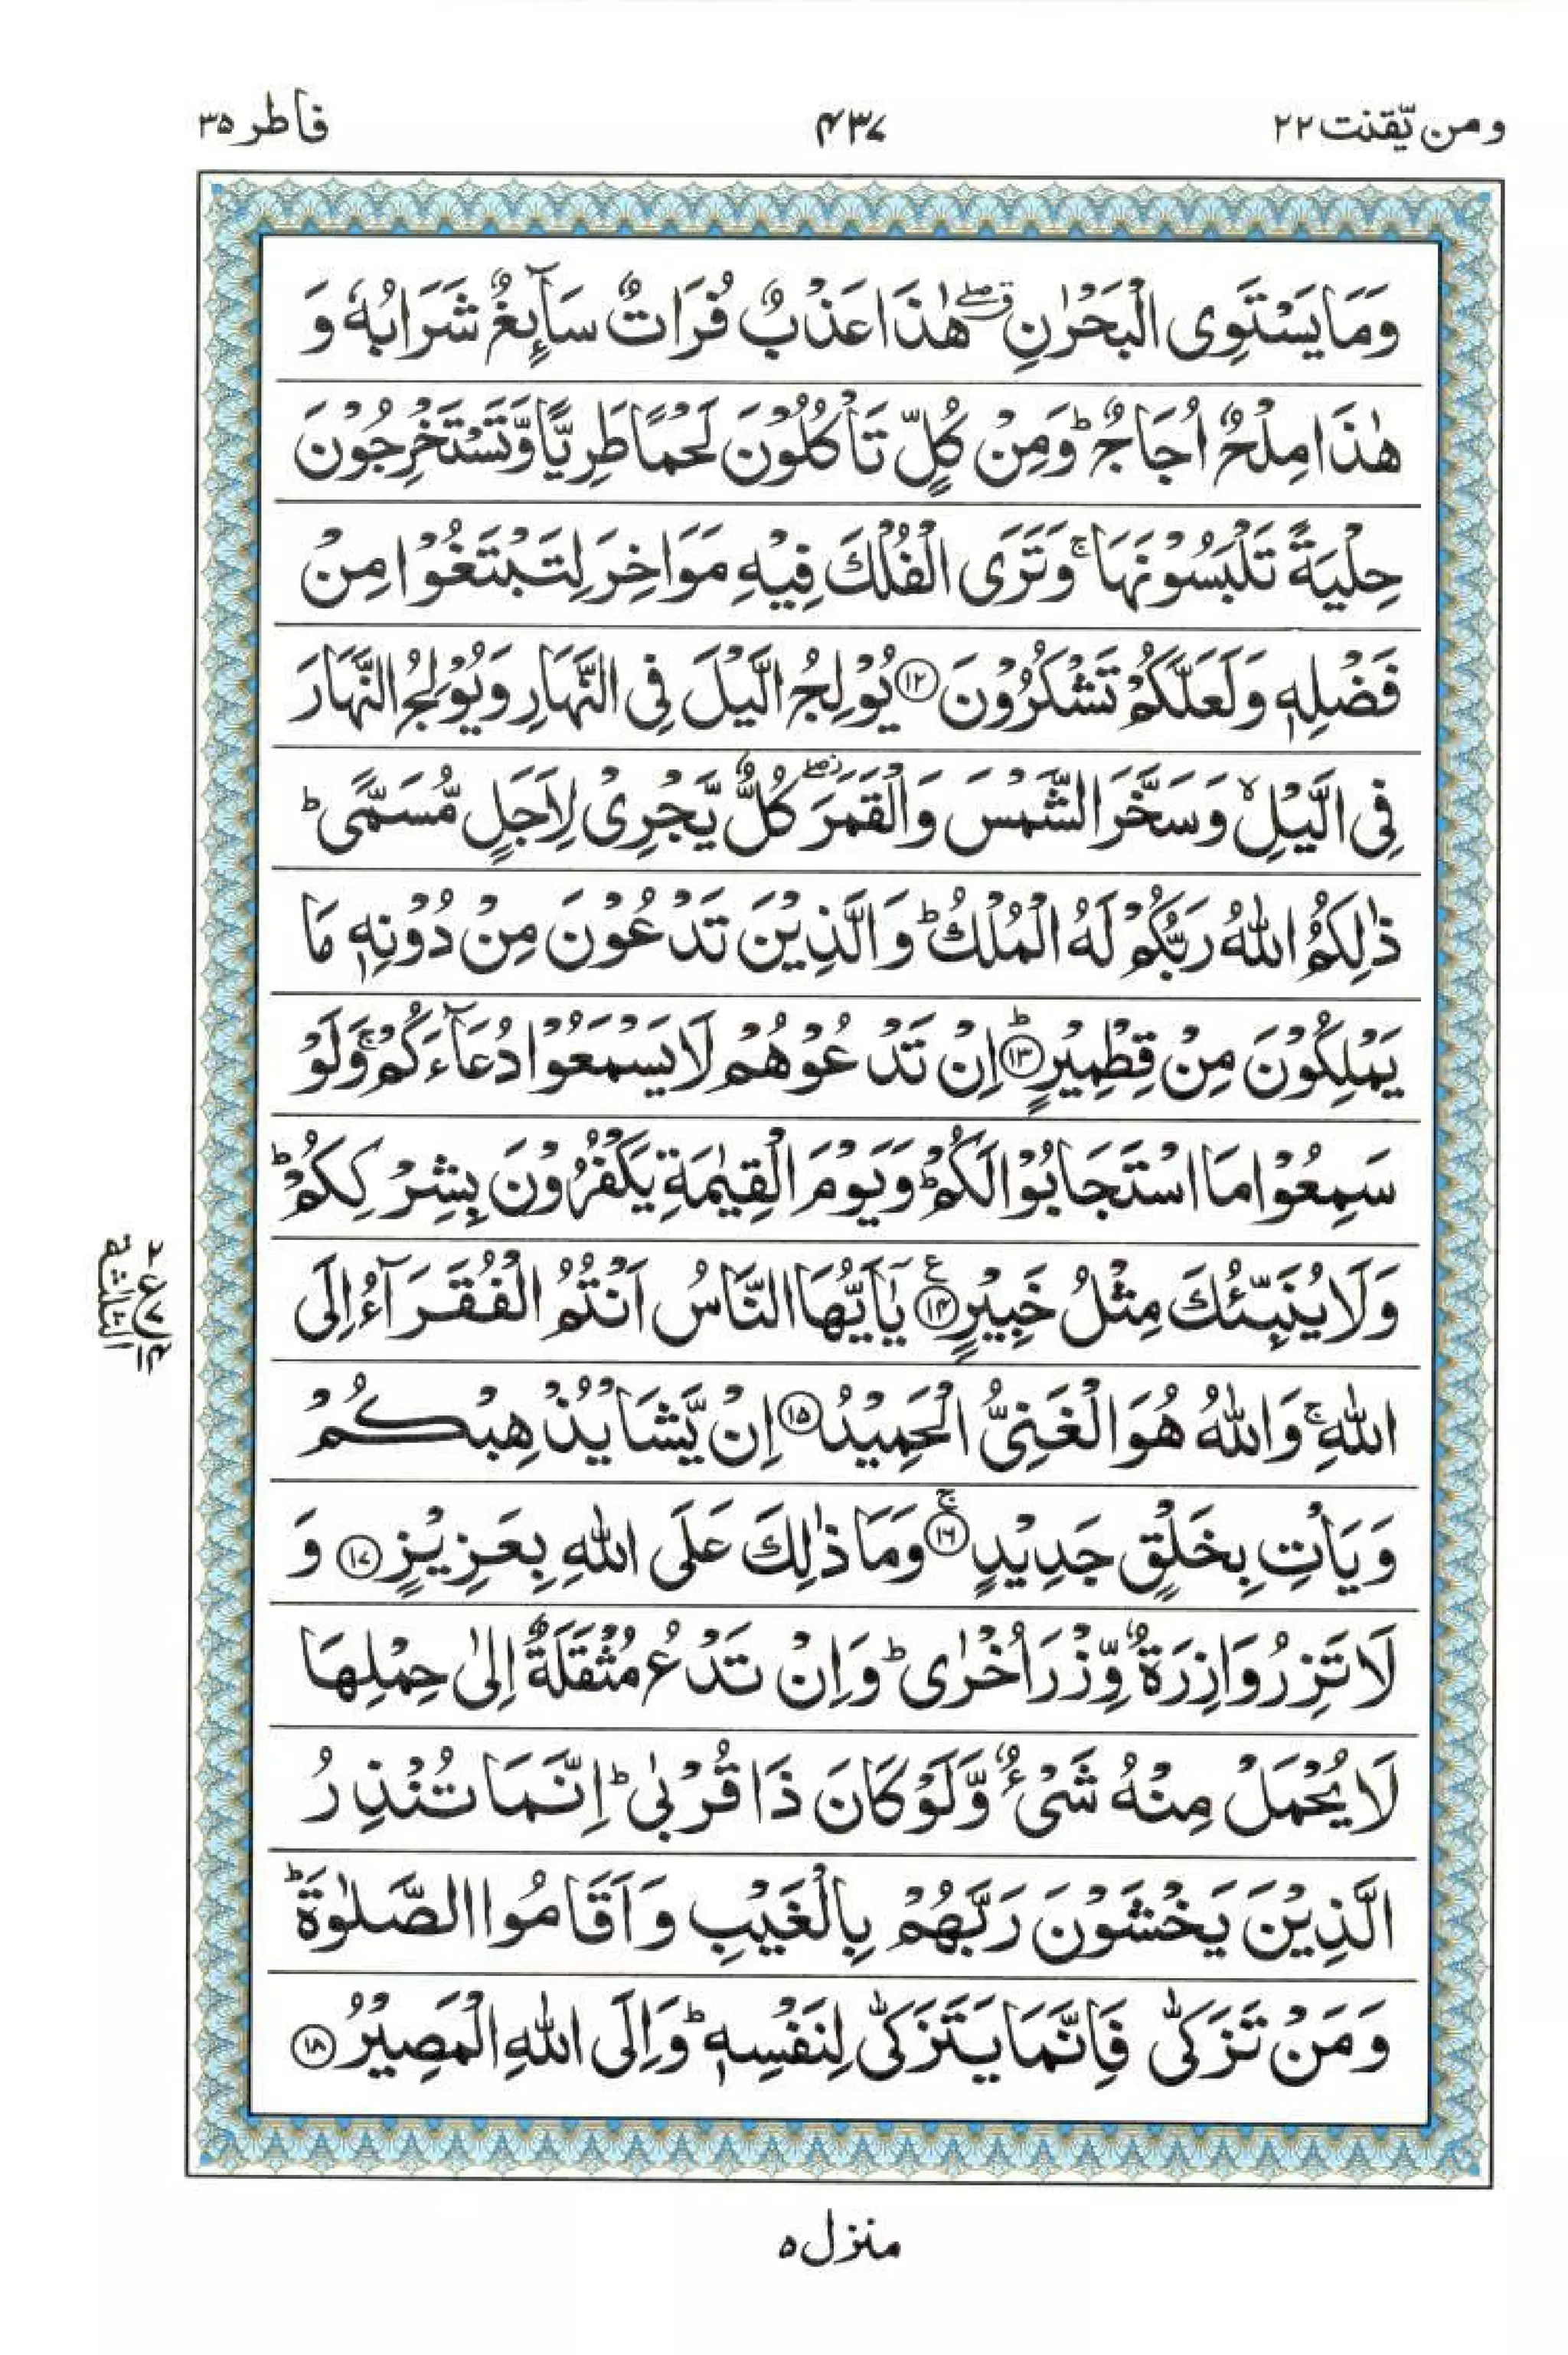 ومن یّقنت ۲۲
۴۳۷
فاطر ۳۵
وَمَا یَسْتَوِی الْبَحْرٰنِ ۖۗ هٰذَا عَذْبٌ فُرَاتٌ سَآىِٕغٌ شَرَابُهٗ وَ
هٰذَا مِلْحٌ اُجَاجٌ ؕ وَمِنْ كُلٍّ تَاْكُلُوْنَ لَحْمًا طَرِیًّا وَّتَسْتَخْرِجُوْنَ
حِلْیَةً تَلْبَسُوْنَهَا ۚ وَتَرَی الْفُلْكَ فِیْهِ مَوَاخِرَ لِتَبْتَغُوْا مِنْ
فَضْلِهٖ وَلَعَلَّكُمْ تَشْكُرُوْنَ ﴿۱۲﴾ یُوْلِجُ الَّیْلَ فِی النَّهَارِ وَیُوْلِجُ النَّهَارَ
فِی الَّیْلِ ۙ وَسَخَّرَ الشَّمْسَ وَالْقَمَرَ ۖؗ كُلٌّ یَّجْرِیْ لِاَجَلٍ مُّسَمًّی ؕ
ذٰلِكُمُ اللّٰهُ رَبُّكُمْ لَهُ الْمُلْكُ ؕ وَالَّذِیْنَ تَدْعُوْنَ مِنْ دُوْنِهٖ مَا
یَمْلِكُوْنَ مِنْ قِطْمِیْرٍ ﴿۱۳﴾ؕ اِنْ تَدْعُوْهُمْ لَا یَسْمَعُوْا دُعَآءَكُمْ ۚ وَلَوْ
سَمِعُوْا مَا اسْتَجَابُوْا لَكُمْ ؕ وَیَوْمَ الْقِیٰمَةِ یَكْفُرُوْنَ بِشِرْكِكُمْ ؕ
وَلَا یُنَبِّئُكَ مِثْلُ خَبِیْرٍ ﴿۱۴﴾ع یٰۤاَیُّهَا النَّاسُ اَنْتُمُ الْفُقَرَآءُ اِلَی
اللّٰهِ ۚ وَاللّٰهُ هُوَ الْغَنِیُّ الْحَمِیْدُ ﴿۱۵﴾ اِنْ یَّشَاْ یُذْهِبْكُمْ
وَیَاْتِ بِخَلْقٍ جَدِیْدٍ ﴿۱۶﴾ۚ وَمَا ذٰلِكَ عَلَی اللّٰهِ بِعَزِیْزٍ ﴿۱۷﴾ وَ
لَا تَزِرُ وَازِرَةٌ وِّزْرَ اُخْرٰی ؕ وَاِنْ تَدْعُ مُثْقَلَةٌ اِلٰی حِمْلِهَا
لَا یُحْمَلْ مِنْهُ شَیْءٌ وَّلَوْ كَانَ ذَا قُرْبٰی ؕ اِنَّمَا تُنْذِرُ
الَّذِیْنَ یَخْشَوْنَ رَبَّهُمْ بِالْغَیْبِ وَاَقَامُوا الصَّلٰوةَ ؕ
وَمَنْ تَزَكّٰی فَاِنَّمَا یَتَزَكّٰی لِنَفْسِهٖ ؕ وَاِلَی اللّٰهِ الْمَصِیْرُ ﴿۱۸﴾
۲
ع ۷
۱۴
الثلثة
منزل ۵